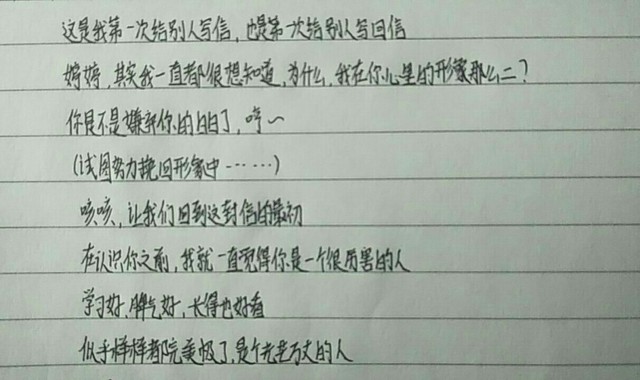 这是我第一次给别人写信，也是第一次给别人写回信
婷婷，其实我一直都很想知道，为什么，我在你心里的形象那么二？
你是不是嫌弃你的日日了，哼～
（试图努力挽回形象中……）
咳咳，让我们回到这封信的最初
在认识你之前，我就一直觉得你是一个很厉害的人
学习好，脾气好，长得也好看
似乎样样都完美极了，是个光芒万丈的人